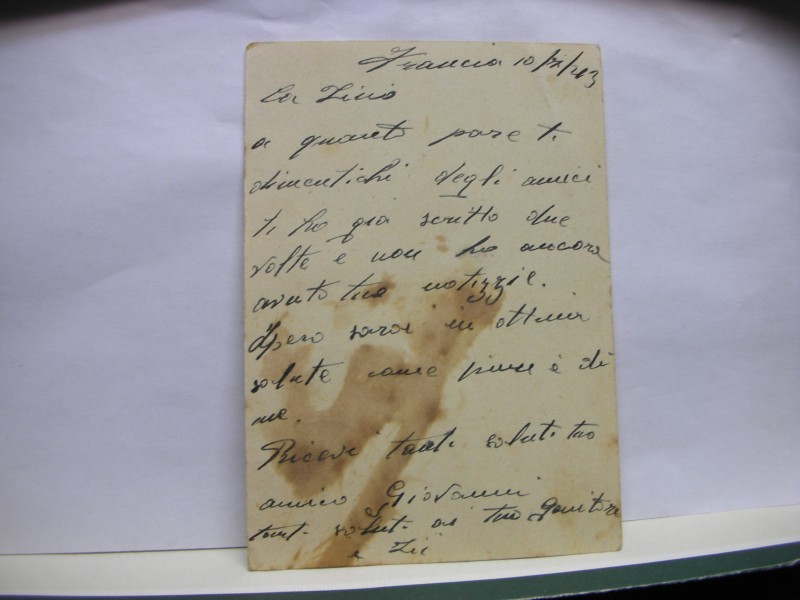 Francia 10/IX/43
Ca Zino
a quanto pare ti
dimentichi degli amici
ti ho già scritto due
volte e non ho ancora
avuto tue notizzie.
Spero sarai in ottima
salute come pure è di
me.
Ricevi tanti saluti tuo
amico Giovanni
tanti saluti ai tuo genitore
e Zii